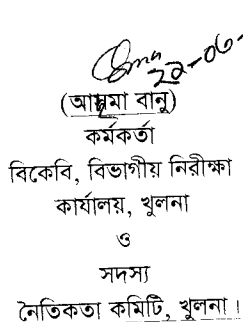 ২২-০৬-
(আসমা বানু)
কর্মকর্তা
বিকেবি, বিভাগীয় নিরীক্ষা
কার্যালয়, খুলনা
ও
সদস্য
নৈতিকতা কমিটি, খুলনা।